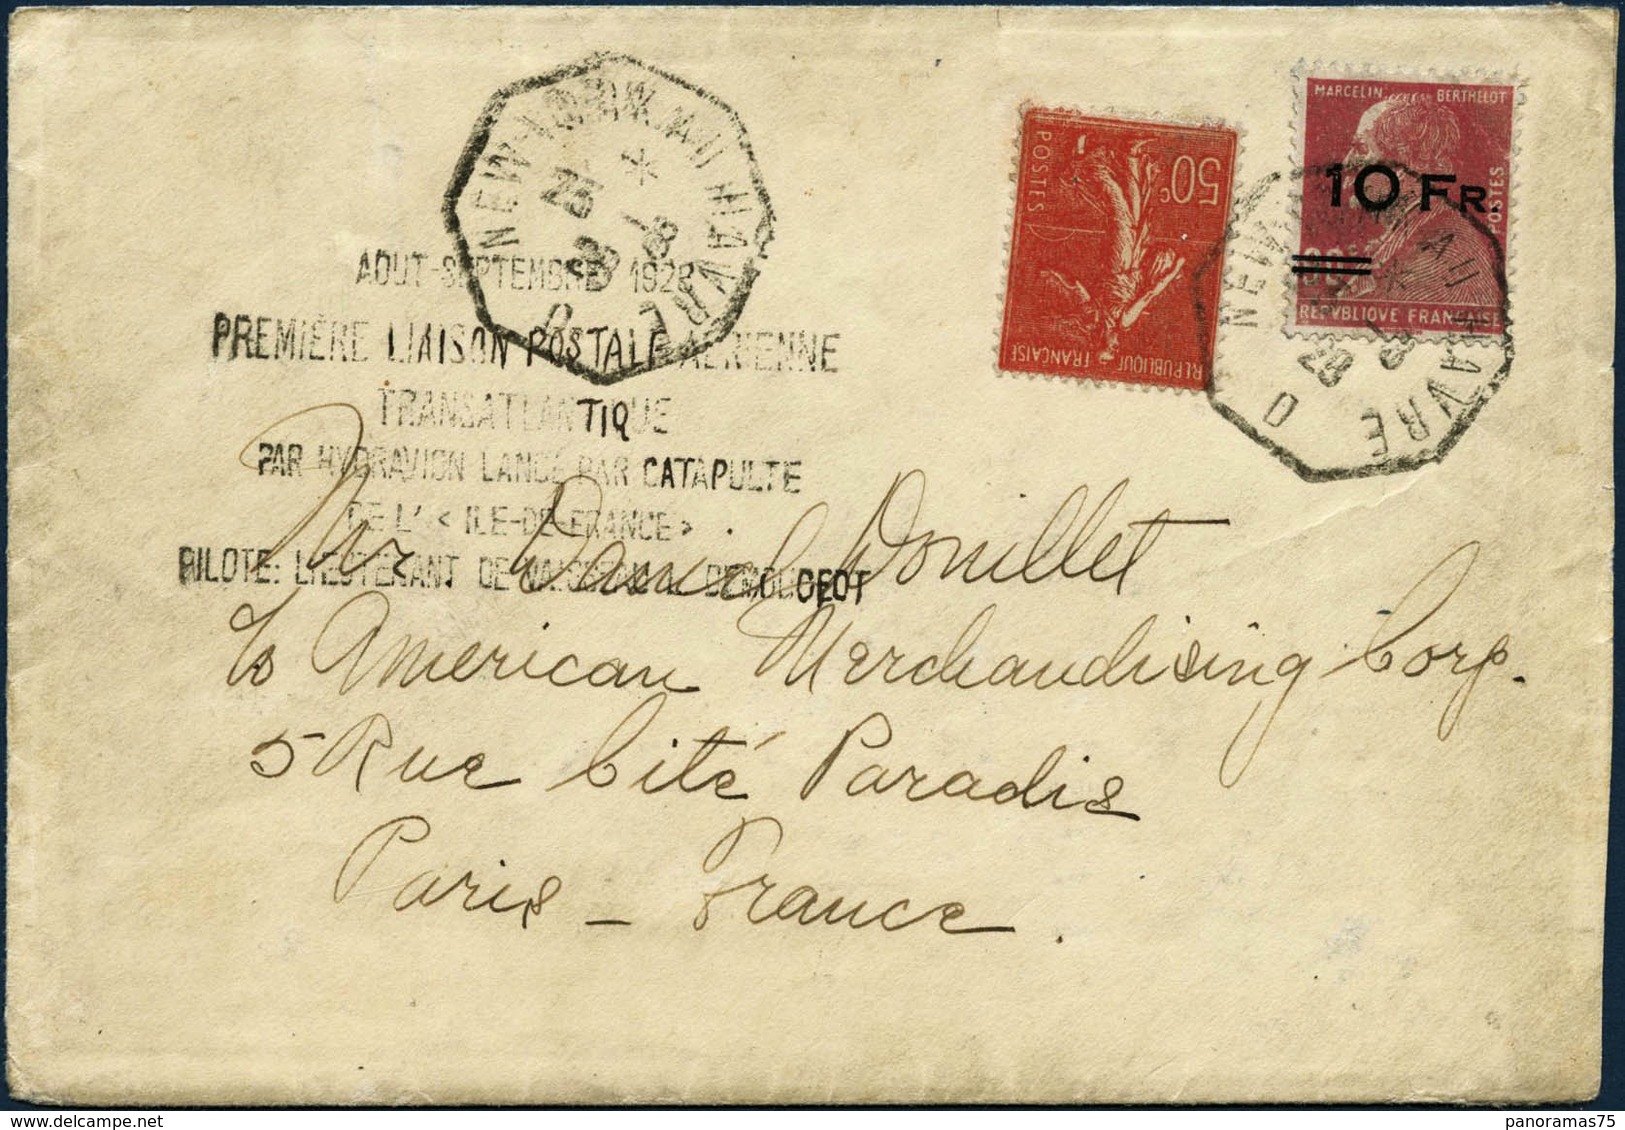 NEW-YORK AU HAVRE
*
D
MARCELIN BERTHELOT
10 FR.
POSTES
90c
REPVBLIQVE FRANÇAISE
50c
POSTES
REPUBLIQUE FRANÇAISE
NEW AU HAVRE
*
D
AOUT-SEPTEMBRE 1928
PREMIÈRE LIAISON POSTALE AERIENNE
TRANSATLANTIQUE
PAR HYDRAVION LANCÉ PAR CATAPULTE
DE L' < ILE-DE-FRANCE >
PILOTE: LIEUTENANT DE VAISSEAU DEMOUGEOT
Mr Daniel Douillet
c/o American Merchandising Corp.
5 Rue Cité Paradis
Paris – France.
panoramas75